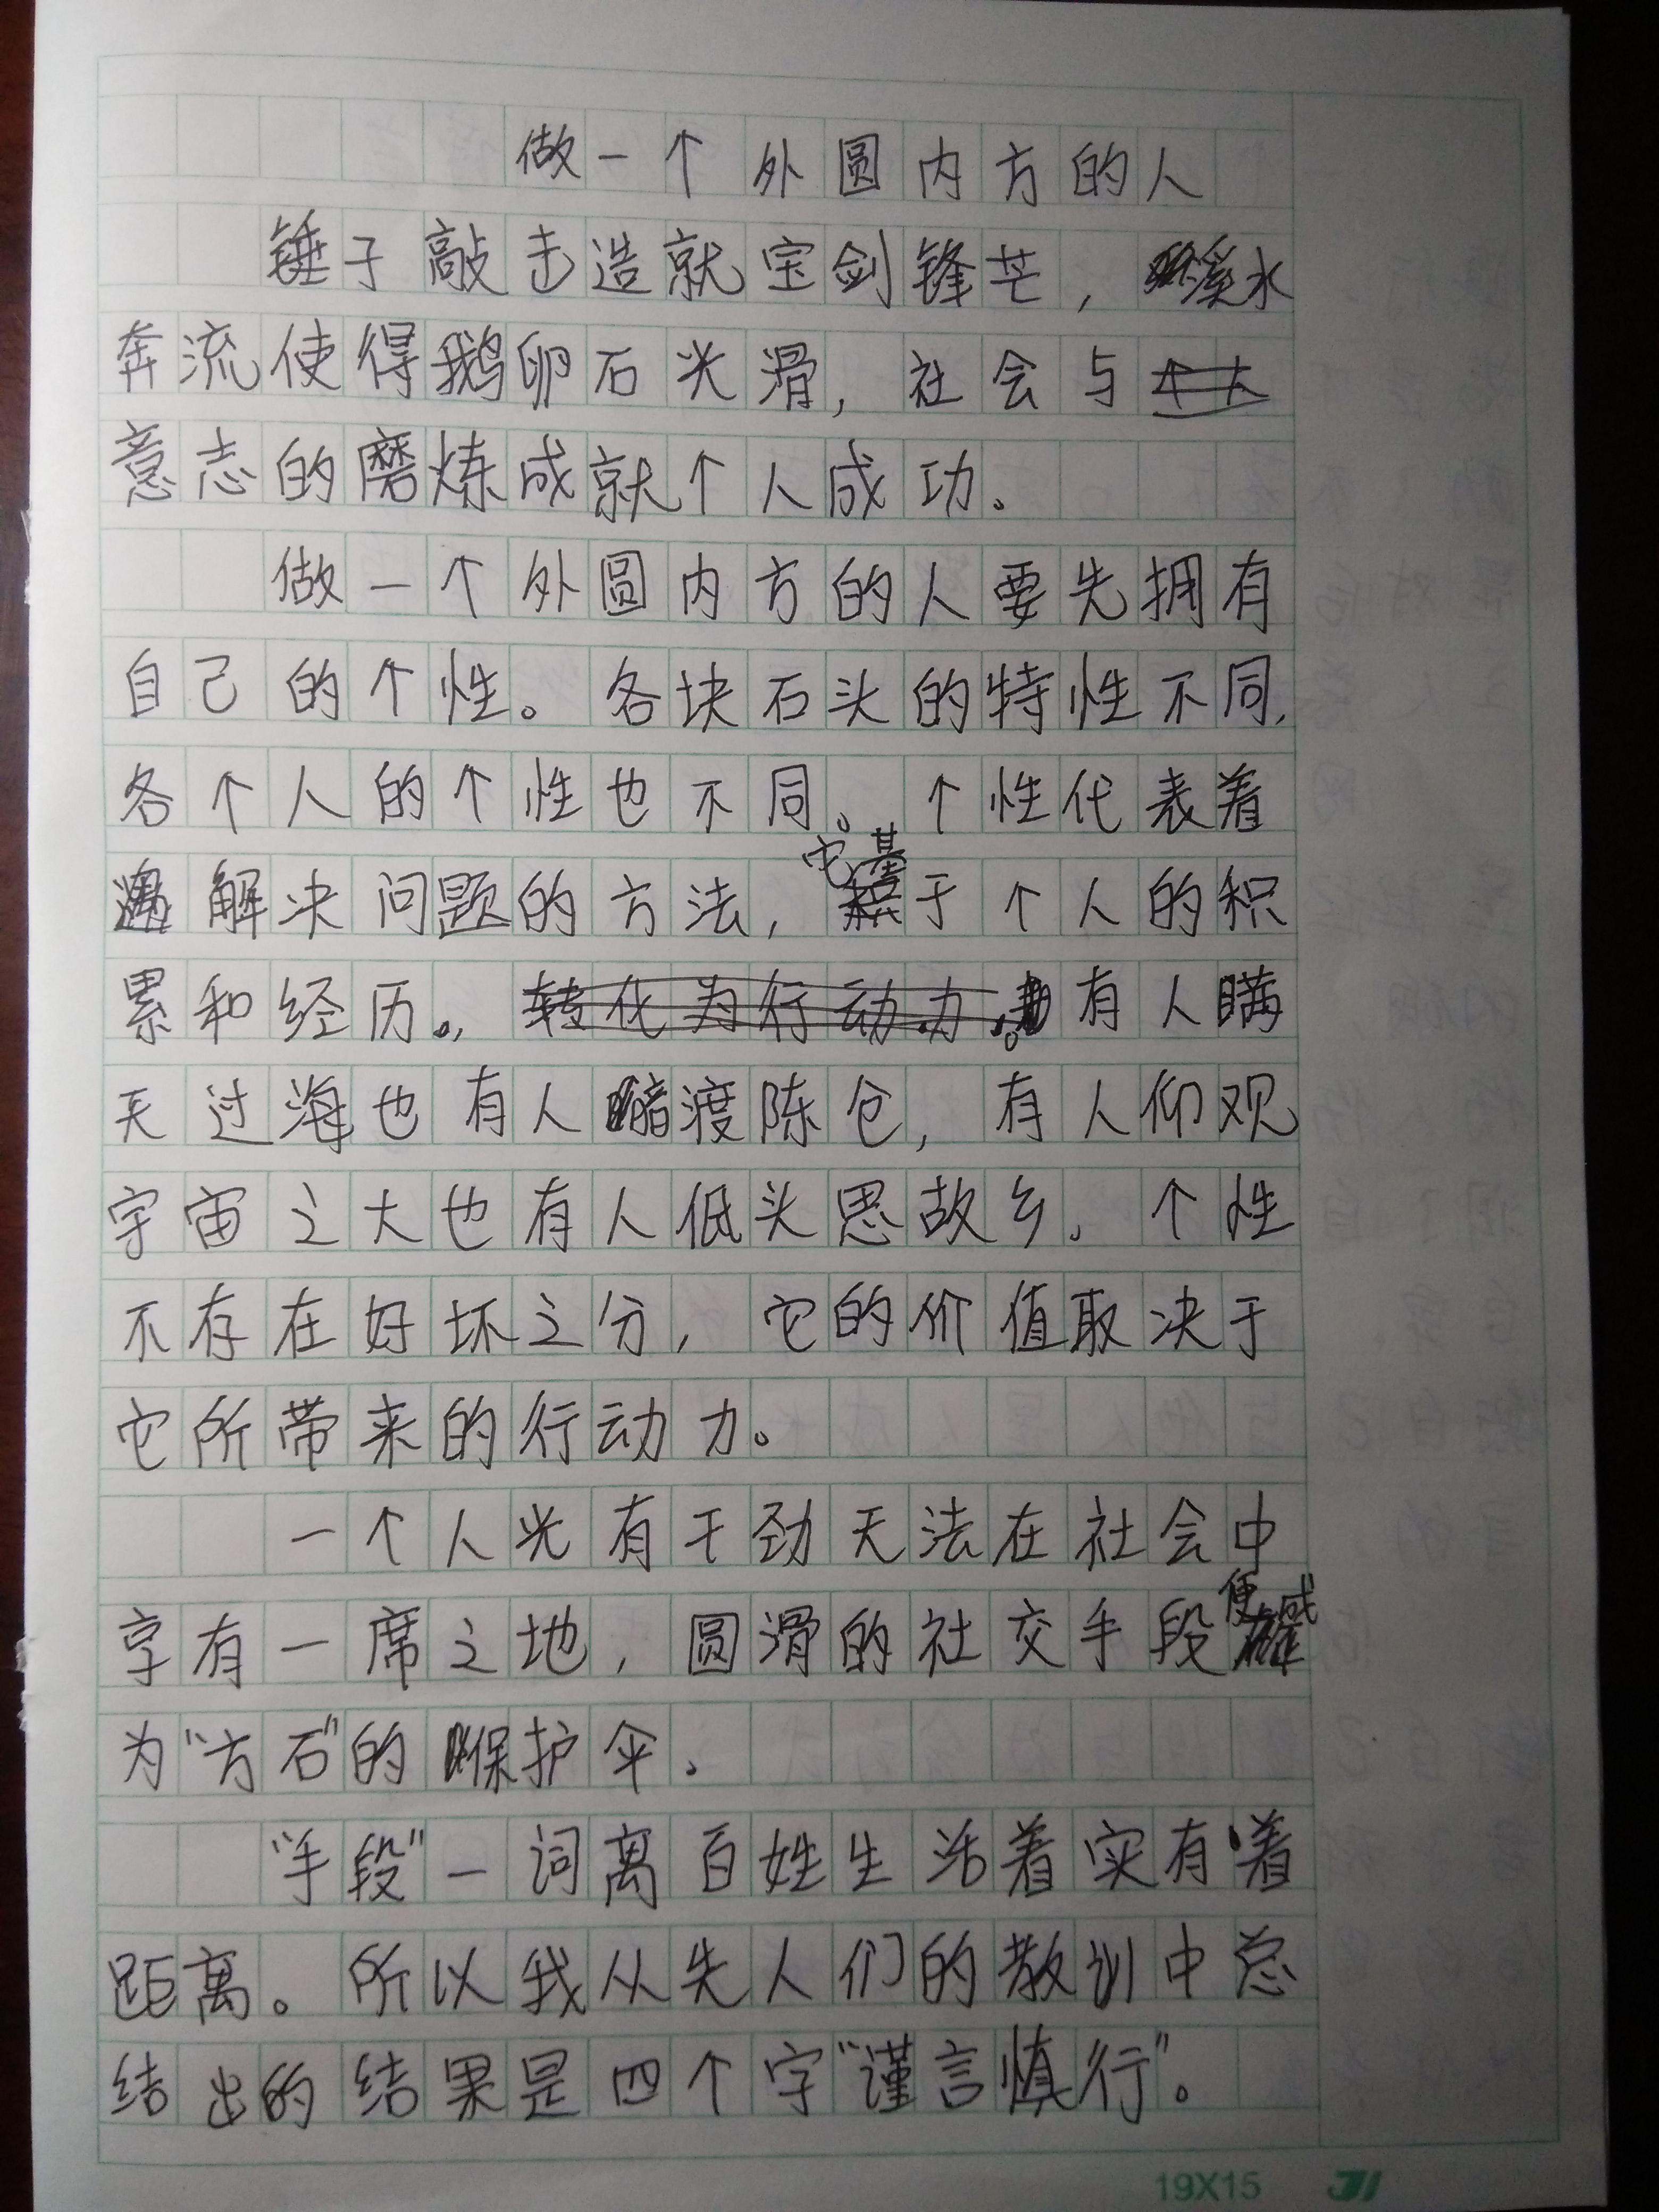 做一个外圆内方的人
锤子敲击造就宝剑锋芒，溪水
奔流使得鹅卵石光滑，社会与
意志的磨炼成就个人成功。
做一个外圆内方的人要先拥有
自己的个性。各块石头的特性不同，
各个人的个性也不同。个性代表着
解决问题的方法，它基于个人的积
累和经历。有人瞒
天过海也有人暗渡陈仓，有人仰观
宇宙之大也有人低头思故乡。个性
不存在好坏之分，它的价值取决于
它所带来的行动力。
一个人光有干劲无法在社会中
享有一席之地，圆滑的社交手段便成
为“方石”的保护伞。
“手段”一词离百姓生活着实有着
距离。所以我从先人们的教训中总
结出的结果是四个字“谨言慎行”。
19X15